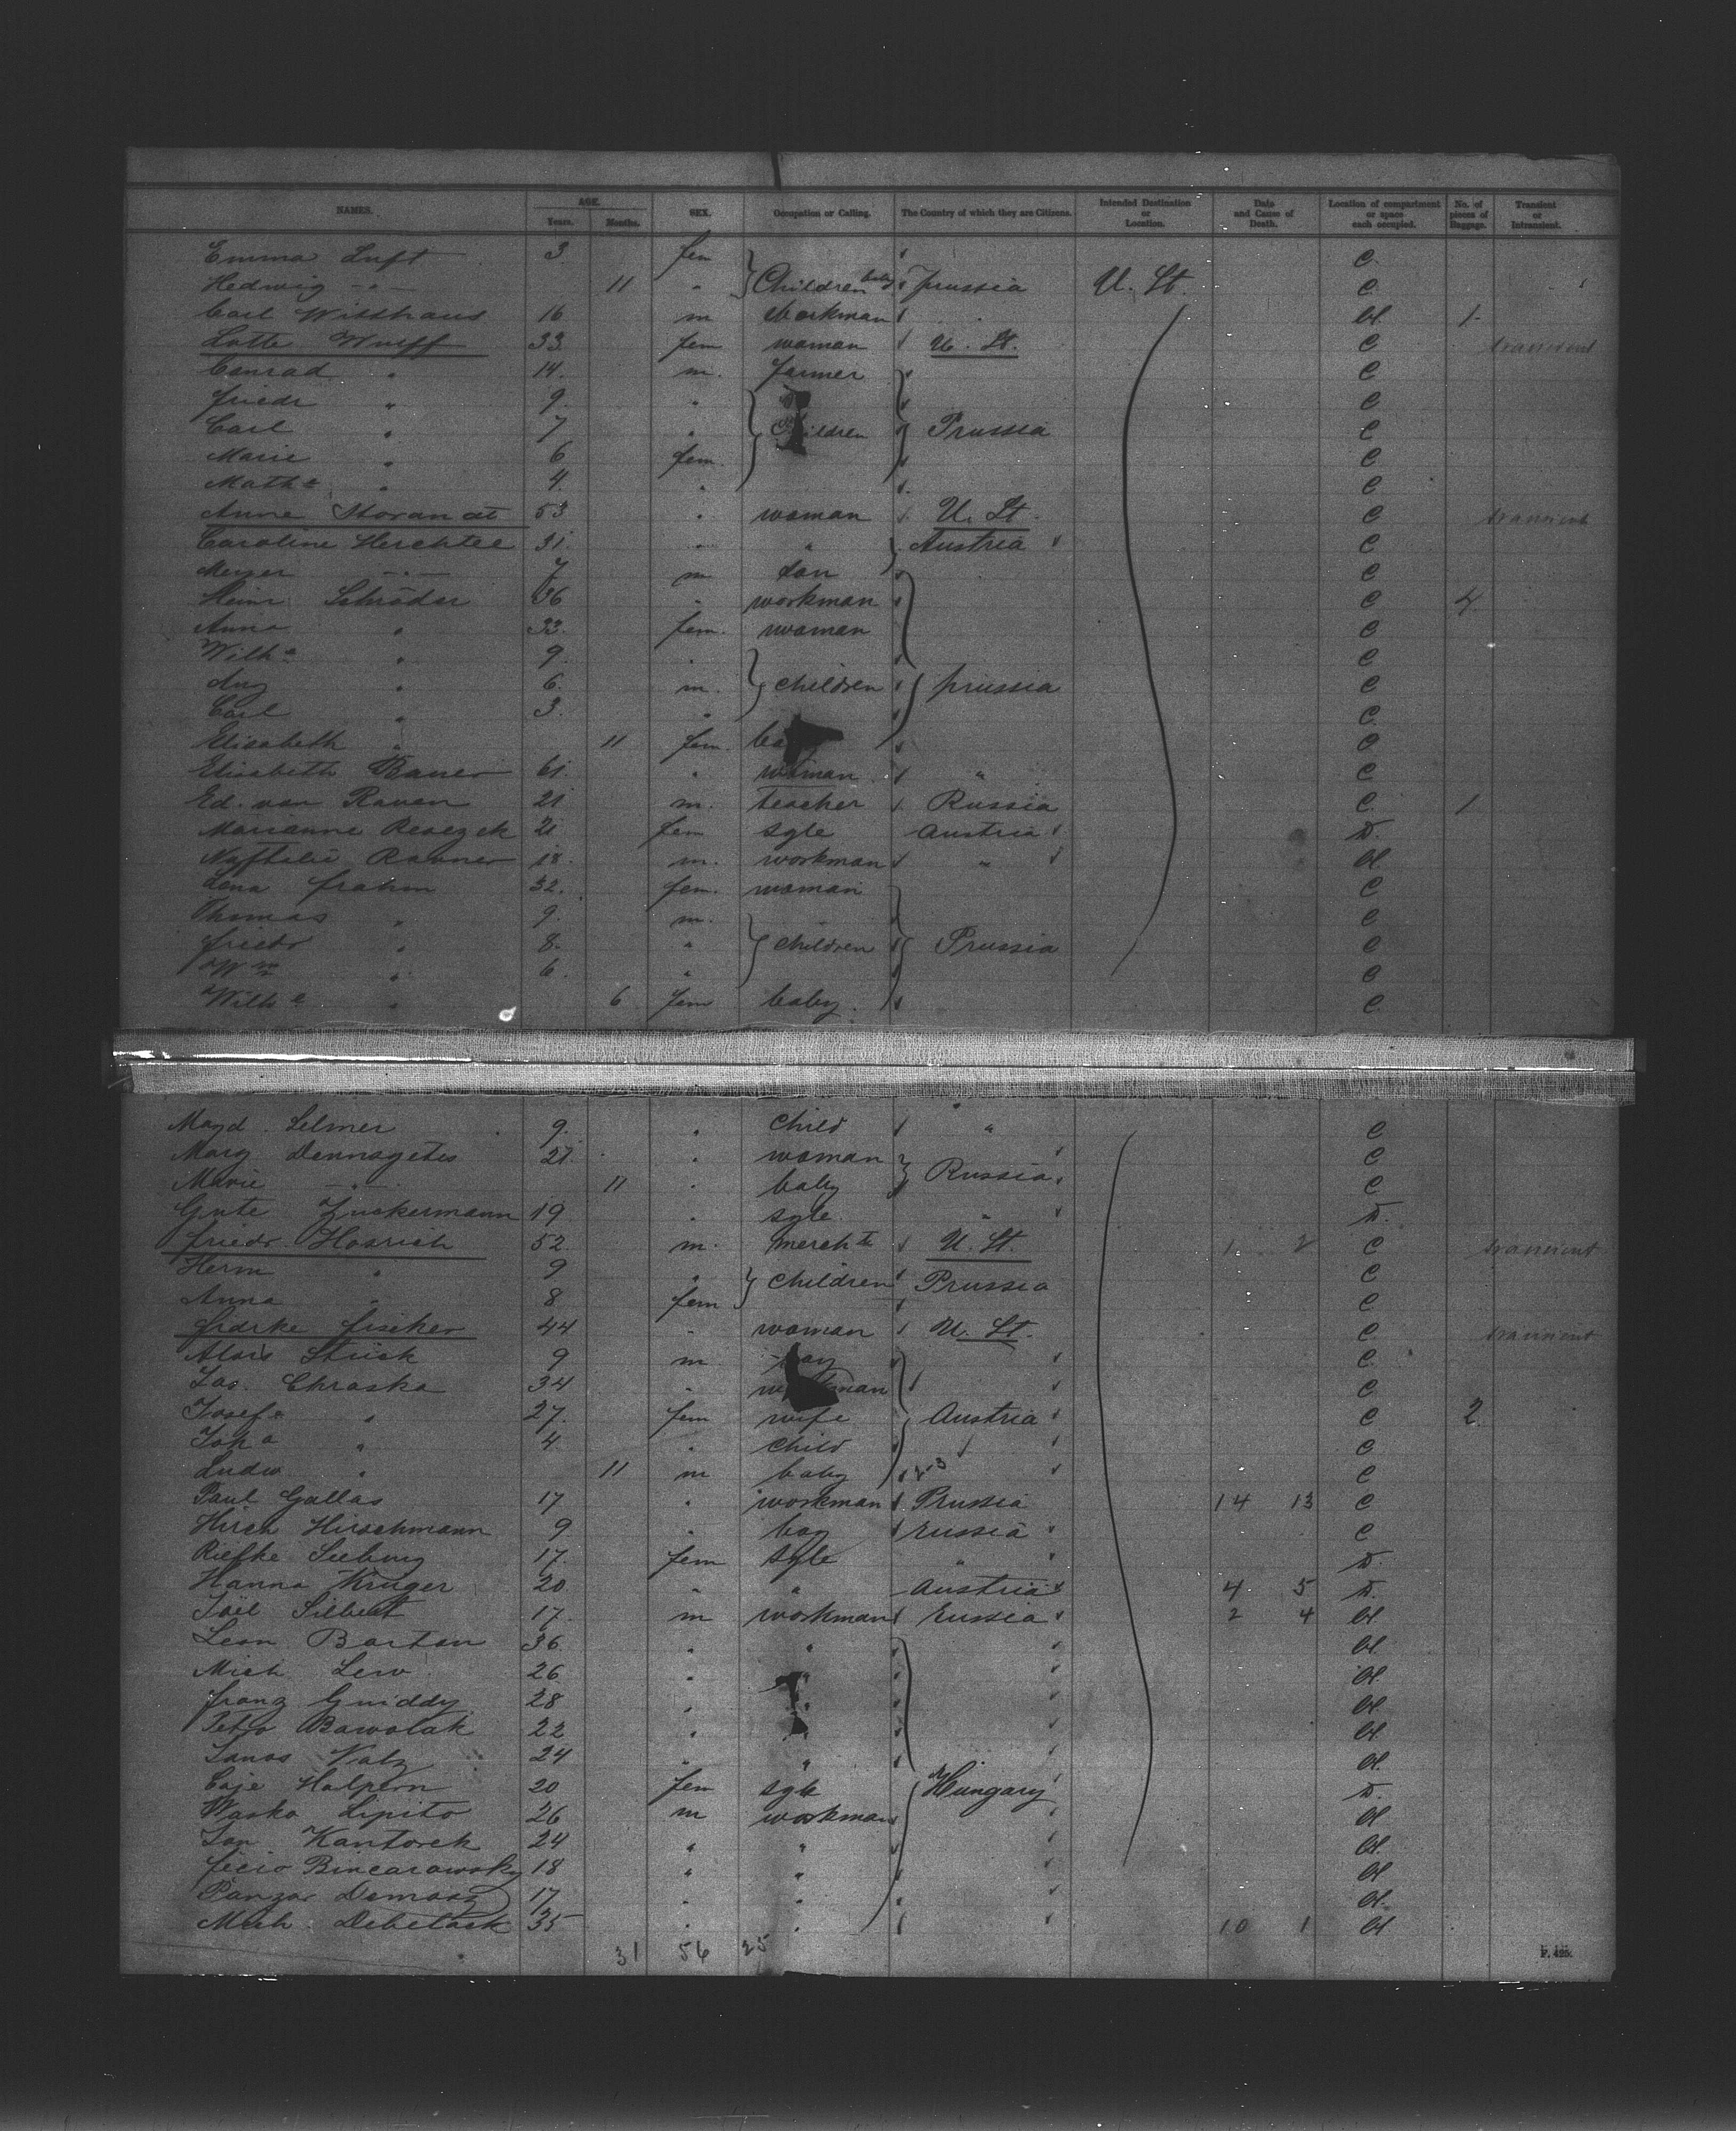 NAMES. AGE. Years. Months. SEX. Occupation or Calling. The Country of which they are Citizens. Intended Destination or Location. Date and Cause of Death. Location of compartment or space each occupied. No. of pieces of Baggage. Transient or Intransient.
Emma Luft 3 fem C.
Hedwig -"- 11 " Children baby prussia U. St. C.
Carl Witthaus 16 m Workman " M 1
Lotte Wulff 33 fem woman U. St. C transient
Conrad " 14. m. farmer C
friedr " 9. " C
Carl " 7 " Children Prussia C
Marie " 6 fem. C
Mathe " 4. " C
Anne 53 " woman U. St. C transient
Caroline Herchtel 31. " " Austria C
Meyer -"- 7 m son C
Heinr Schröder 36 " workman C 4
Anna " 32. fem. woman C
Wilhe " 9. " C
Aug " 6. m. children prussia C
Carl " 3. " C.
Elisabeth " 11 fem. C
Elisabeth Bauer 61. " woman " C
Ed. von Raven 21 m. teacher Russia C. 1
Marianne 21 fem sgle Austria D.
Naftalie Rovner 18. m. workman " M.
Lena frahm 32. fem. woman C
Thomas " 9. m. C
friedr " 8. " children Prussia C
Wm " 6. " C
Wilhe " 6 fem baby. C.
Magd. Selmer 9. " Child " C
Marg 21. " woman C
Marie -"- 11 " baby Russia C
Gute Zuckermann 19 " sgle " D.
friedr. Hosrich 52 m. mercht U. St. 1 2 C transient
Herm " 9 " children Prussia C
Anna " 8 fem C
fischer 44 " woman U. St. C transient
Alois 9 m boy C.
Jos. Chraska 34 " workman C
Josefa " 27. fem wife Austria C 2
" 4 " child C
Ludw " 11 m baby 2-3 C
Paul Gallas 17 " workman Prussia 14 13 C
Hirch Hirschmann 9 " boy Russia C
Riefke 17. fem sgle " D.
Hanna Kruger 20 " " Austria 4 5 D.
Joel Silbert 17. m workman Russia 2 4 M
Leon Bartan 36 " " M.
Mich Lew 26 " " M.
franz Guiddy 28 " " M
Petro Bawolak 22 " " M
Janos 24 " " M.
Caje Halpern 20 fem sgle Hungary D.
Wasko Lipito 26 m workman M
Jan Kantorek 24 " " M.
18 " " M
17 " " M.
Mich. 35 " " 10 1 M
31 56 25
F. 425.